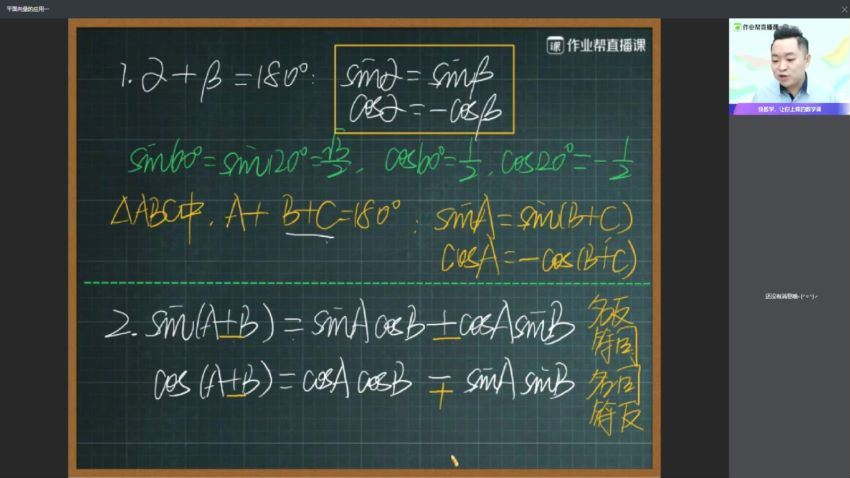 平面向量的应用一
作业帮直播课
1. α+β=180°: sinα=sinβ
cosα=-cosβ
sin60°=sin120°=√3/2, cos60°=1/2, cos120°=-1/2
△ABC中, A+B+C=180°: sinA=sin(B+C)
cosA=-cos(B+C)
2. sin(A±B)=sinAcosB±cosAsinB 名反
符同
cos(A±B)=cosAcosB∓sinAsinB 名同
符反
作业帮直播课
快数学，让你上瘾的数学课